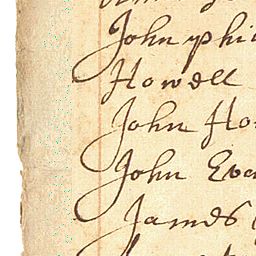 John phi
Howell
John Ho
John Eva
James